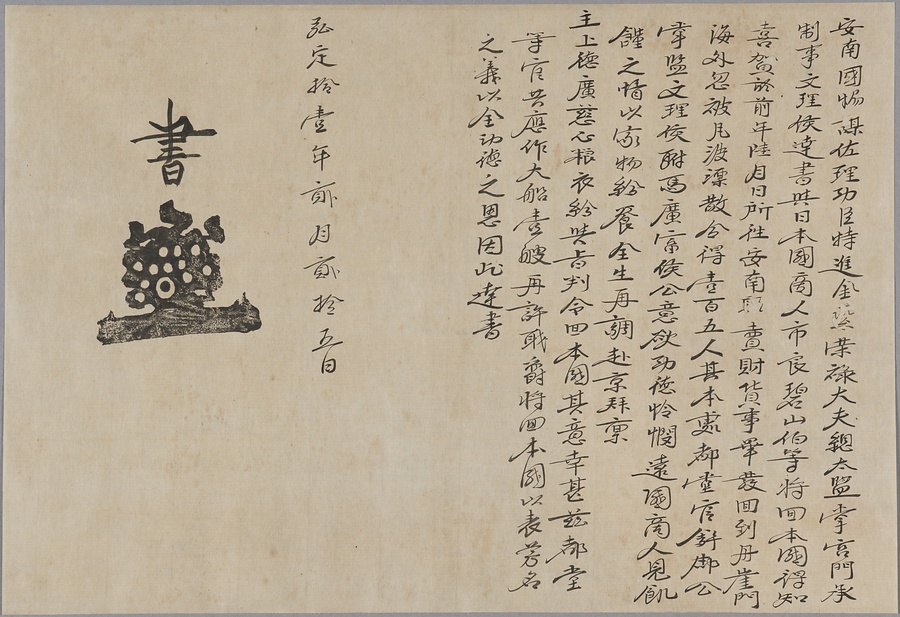 安南國惕謀佐理功臣特進金紫榮祿大夫總太監掌宮門承
制事文理侯達書與日本國商人市良碧山伯等將回本國得知
喜賀於前年陸月日所往安南販賣財貨事畢發回到丹崖門
海外忽被凡波漂散全得壹百五人其本處都堂官舒郡公
掌監文理侯駙馬廣富侯公意欲功德怜憫遠國商人見飢
饉之情以家物給養全生再調赴京拜稟
主上德廣慈心粮衣給與旨判令回本國其意幸甚茲都堂
等官共應作大船壹艘再許職爵將回本國以表芳名
之義以全功德之恩因此達書
弘定拾壹年貳月貳拾五日
書